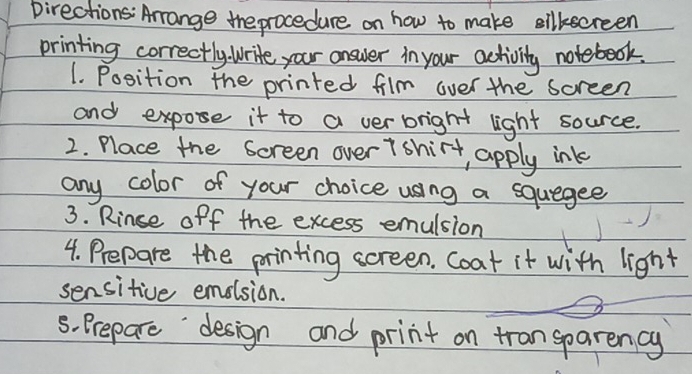 Directions: Arrange the procedure on how to make silkscreen
printing correctly. Write your answer in your activity notebook.
1. Position the printed film over the screen
and expose it to a ver bright light source.
2. Place the screen over T shirt, apply ink
any color of your choice using a squegee
3. Rinse off the excess emulsion
4. Prepare the printing screen. Coat it with light
sensitive emolsion.
5. Prepare design and print on transparency